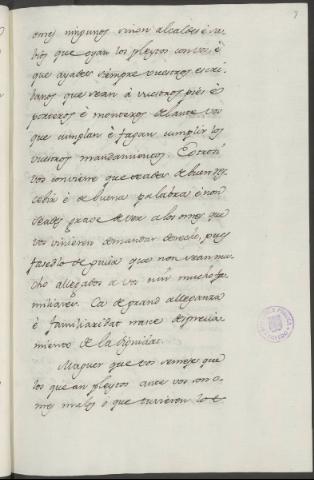 7
omes ningunos sinon alcaldes é sa-
bios que oyan los pleytos con vos, é
que ayades siempre vuestros escri-
banos que sean á vuestros pies é
porteros é monteros delante vos
que cumplan é fagan cumplir los
vuestros mandamientos. Et otrosi
vos conviene que seades de buen res-
cebir é de buena palabra é non
seades grave de ver a los omes que
vos vinieren demandar derecho, pues
fasedlo de guisa que non sean mu-
cho allegados a vos nin mucho fa-
miliares. Ca de grand alleganza
é familiaridat nace desprecia-
miento de la dignidat.
Maguer que vos semeje que
los que an pleytos ante vos son o-
mes malos ó que tuvieron